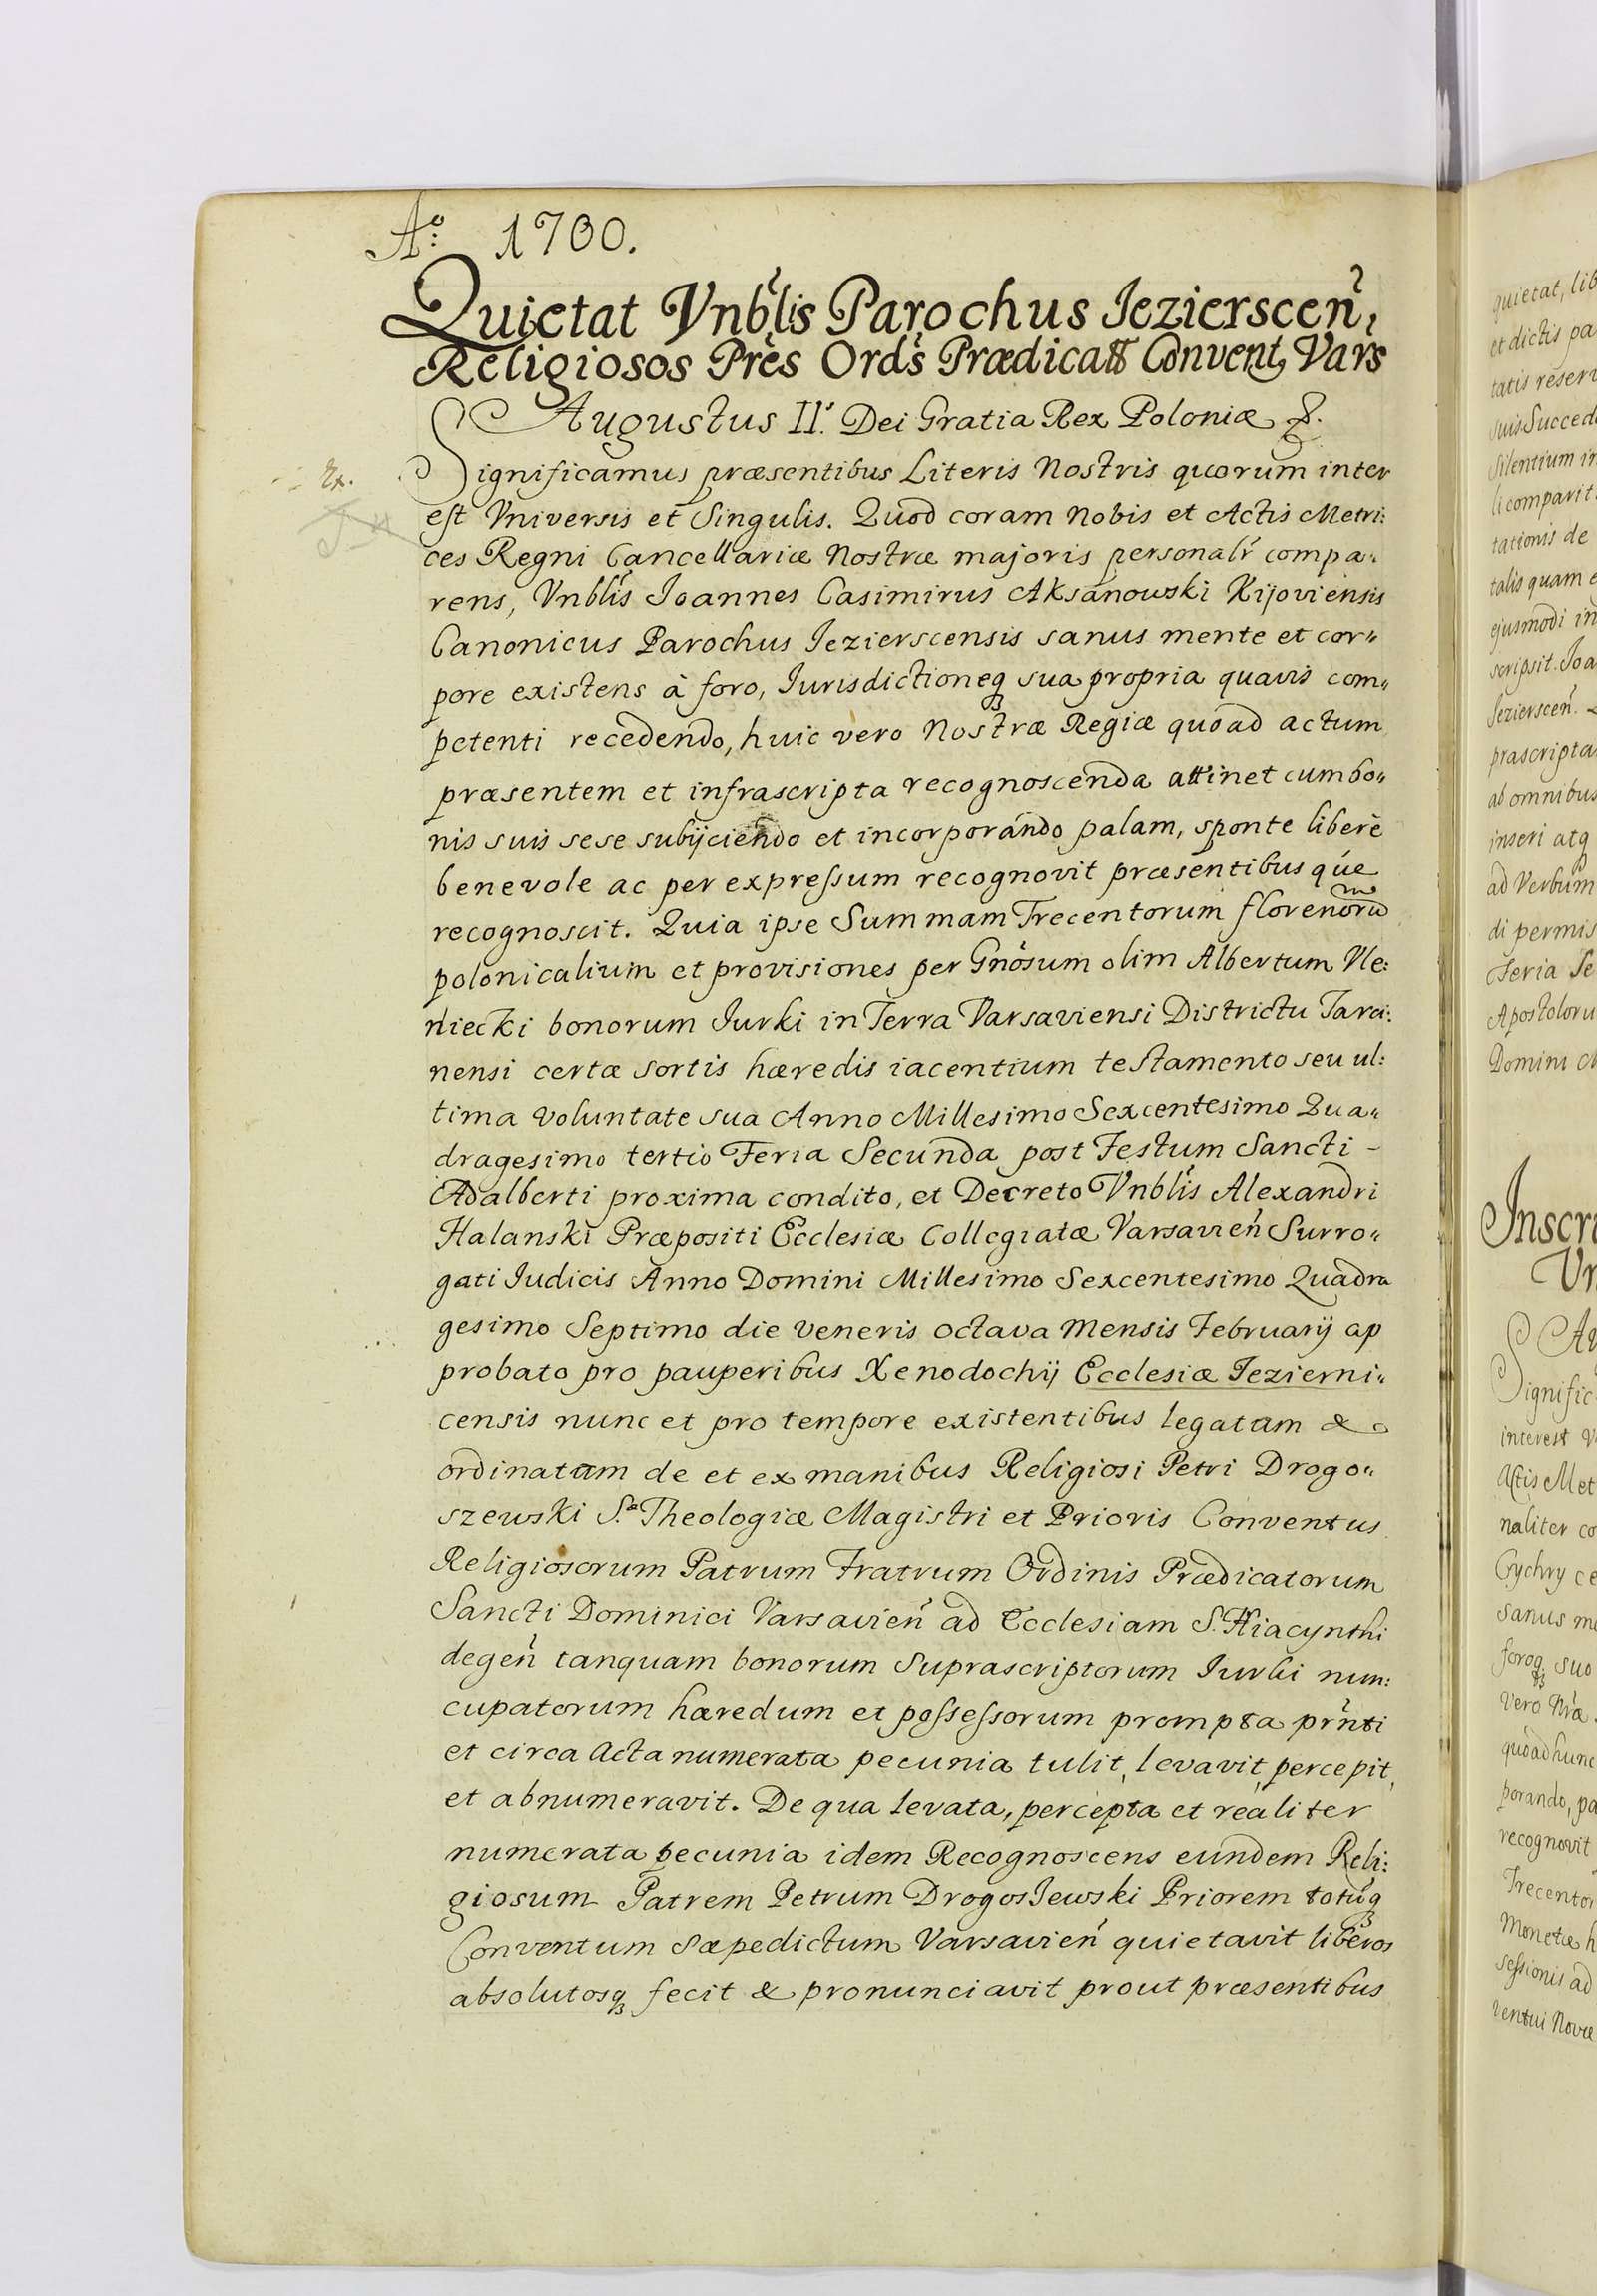 Aº 1700.
Quietat Vnblis Parochus Iezierscen,
Religiosos Pres Ords Prædicatt Convent Vars
Augustus II. Dei Gratia Rex Poloniæ &.
Ex.
Significamus præsentibus Literis Nostris quorum inter
est Vniversis et Singulis. Quod coram nobis et Actis Metri:
ces Regni Cancellariæ Nostræ majoris personalr compa:
rens, Vnblis Joannes Casimirus Aksanowski Kijoviensis
Canonicus Parochus Iezierscensis sanus mente et cor„
pore existens à foro, Iurisdictioneq sua propria quavis com„
petenti recedendo, huic vero Nostræ Regiæ quoad actum
præsentem et infrascripta recognoscenda attinet cum bo„
nis suis sese subijciendo et incorporando palam, sponte liberè
benevole ac per expressum recognovit præsentibus que
recognoscit. Quia ipse Summam Trecentorum florenoru
polonicalium et provisiones per Gnosum olim Albertum Ule:
niecki bonorum Iurki in Terra Varsaviensi Districtu Tarci:
nensi certæ sortis hæredis iacentium testamento seu ul:
tima voluntate sua Anno Millesimo Sexcentesimo Qua„
dragesimo tertio Feria Secunda post Festum Sancti -
Adalberti proxima condito, et Decreto Vnblis Alexandri
Halanski Præpositi Ecclesiæ Collegiatæ Varsavien Surro„
gati Iudicis Anno Domini Millesimo Sexcentesimo Quadra
gesimo Septimo die veneris octava Mensis Februarij ap
probato pro pauperibus Xenodochij Ecclesiæ Iezierni„
censis nunc et pro tempore existentibus legatam &
ordinatam de et ex manibus Religiosi Petri Drogo„
szewski S.æ Theologiæ Magistri et Prioris Conventus
Religiosorum Patrum Fratrum Ordinis Prædicatorum
Sancti Dominici Varsavien ad Ecclesiam S. Hiacynthi
degen tanquam bonorum Suprascriptorum Iurki nun:
cupatorum hæredum et possessorum prompta prnti
et circa Acta numerata pecunia tulit, levavit, percepit,
et abnumeravit. De qua levata, percepta et realiter
numerata pecunia idem Recognoscens eundem Reli:
giosum Patrem Petrum Drogosewski Priorem totuq
Conventum sæpedictum Varsavien quietavit liberos
absolutosq fecit & pronunciavit prout præsentibus
quietat, lib
et dictis pa
tatis reserv
suis Succed
Silentium in
li comparit
tationis de
talis quam e
ejusmodi in
scripsit. Joa
Iezierscen.
præscripta
ab omnibus
inseri atq
ad Verbum
di permis
Feria Se
Apostoloru
Domini M
Inscri
Vn
Au
Signific
interest V
Actis Met
naliter co
Cychry ce
sanus me
foroq suo
vero Nra
quoad hunc
porando, pa
recognovit
Trecentor
Monetæ h
sessionis ad
ventui Novæ